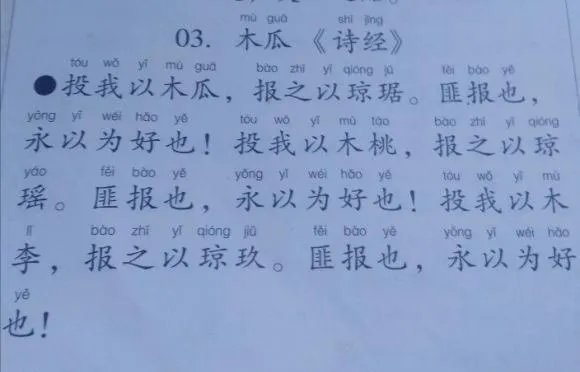 mù guā shī jīng
03. 木瓜《诗经》
tóu wǒ yǐ mù guā bào zhī yǐ qióng jū fěi bào yě
●投我以木瓜，报之以琼琚。匪报也，
yǒng yǐ wéi hǎo yě tóu wǒ yǐ mù táo bào zhī yǐ qióng
永以为好也！投我以木桃，报之以琼
yáo fěi bào yě yǒng yǐ wéi hǎo yě tóu wǒ yǐ mù
瑶。匪报也，永以为好也！投我以木
lǐ bào zhī yǐ qióng jiǔ fěi bào yě yǒng yǐ wéi hǎo
李，报之以琼玖。匪报也，永以为好
yě
也！